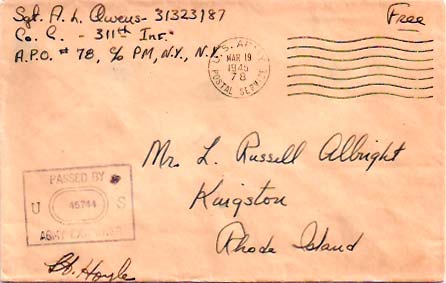 Sgt. A. L. Owens - 31323187
Free
Co. C. - 311th Inf.
A.P.O. # 78, c/o PM, N.Y., N.Y.
U.S. ARMY
MAR 19
1945
78
POSTAL SERVICE
Mr. L. Russell Albright
Kingston
Rhode Island
PASSED BY
U 45744 S
ARMY EXAMINER
Lt. Hoyle